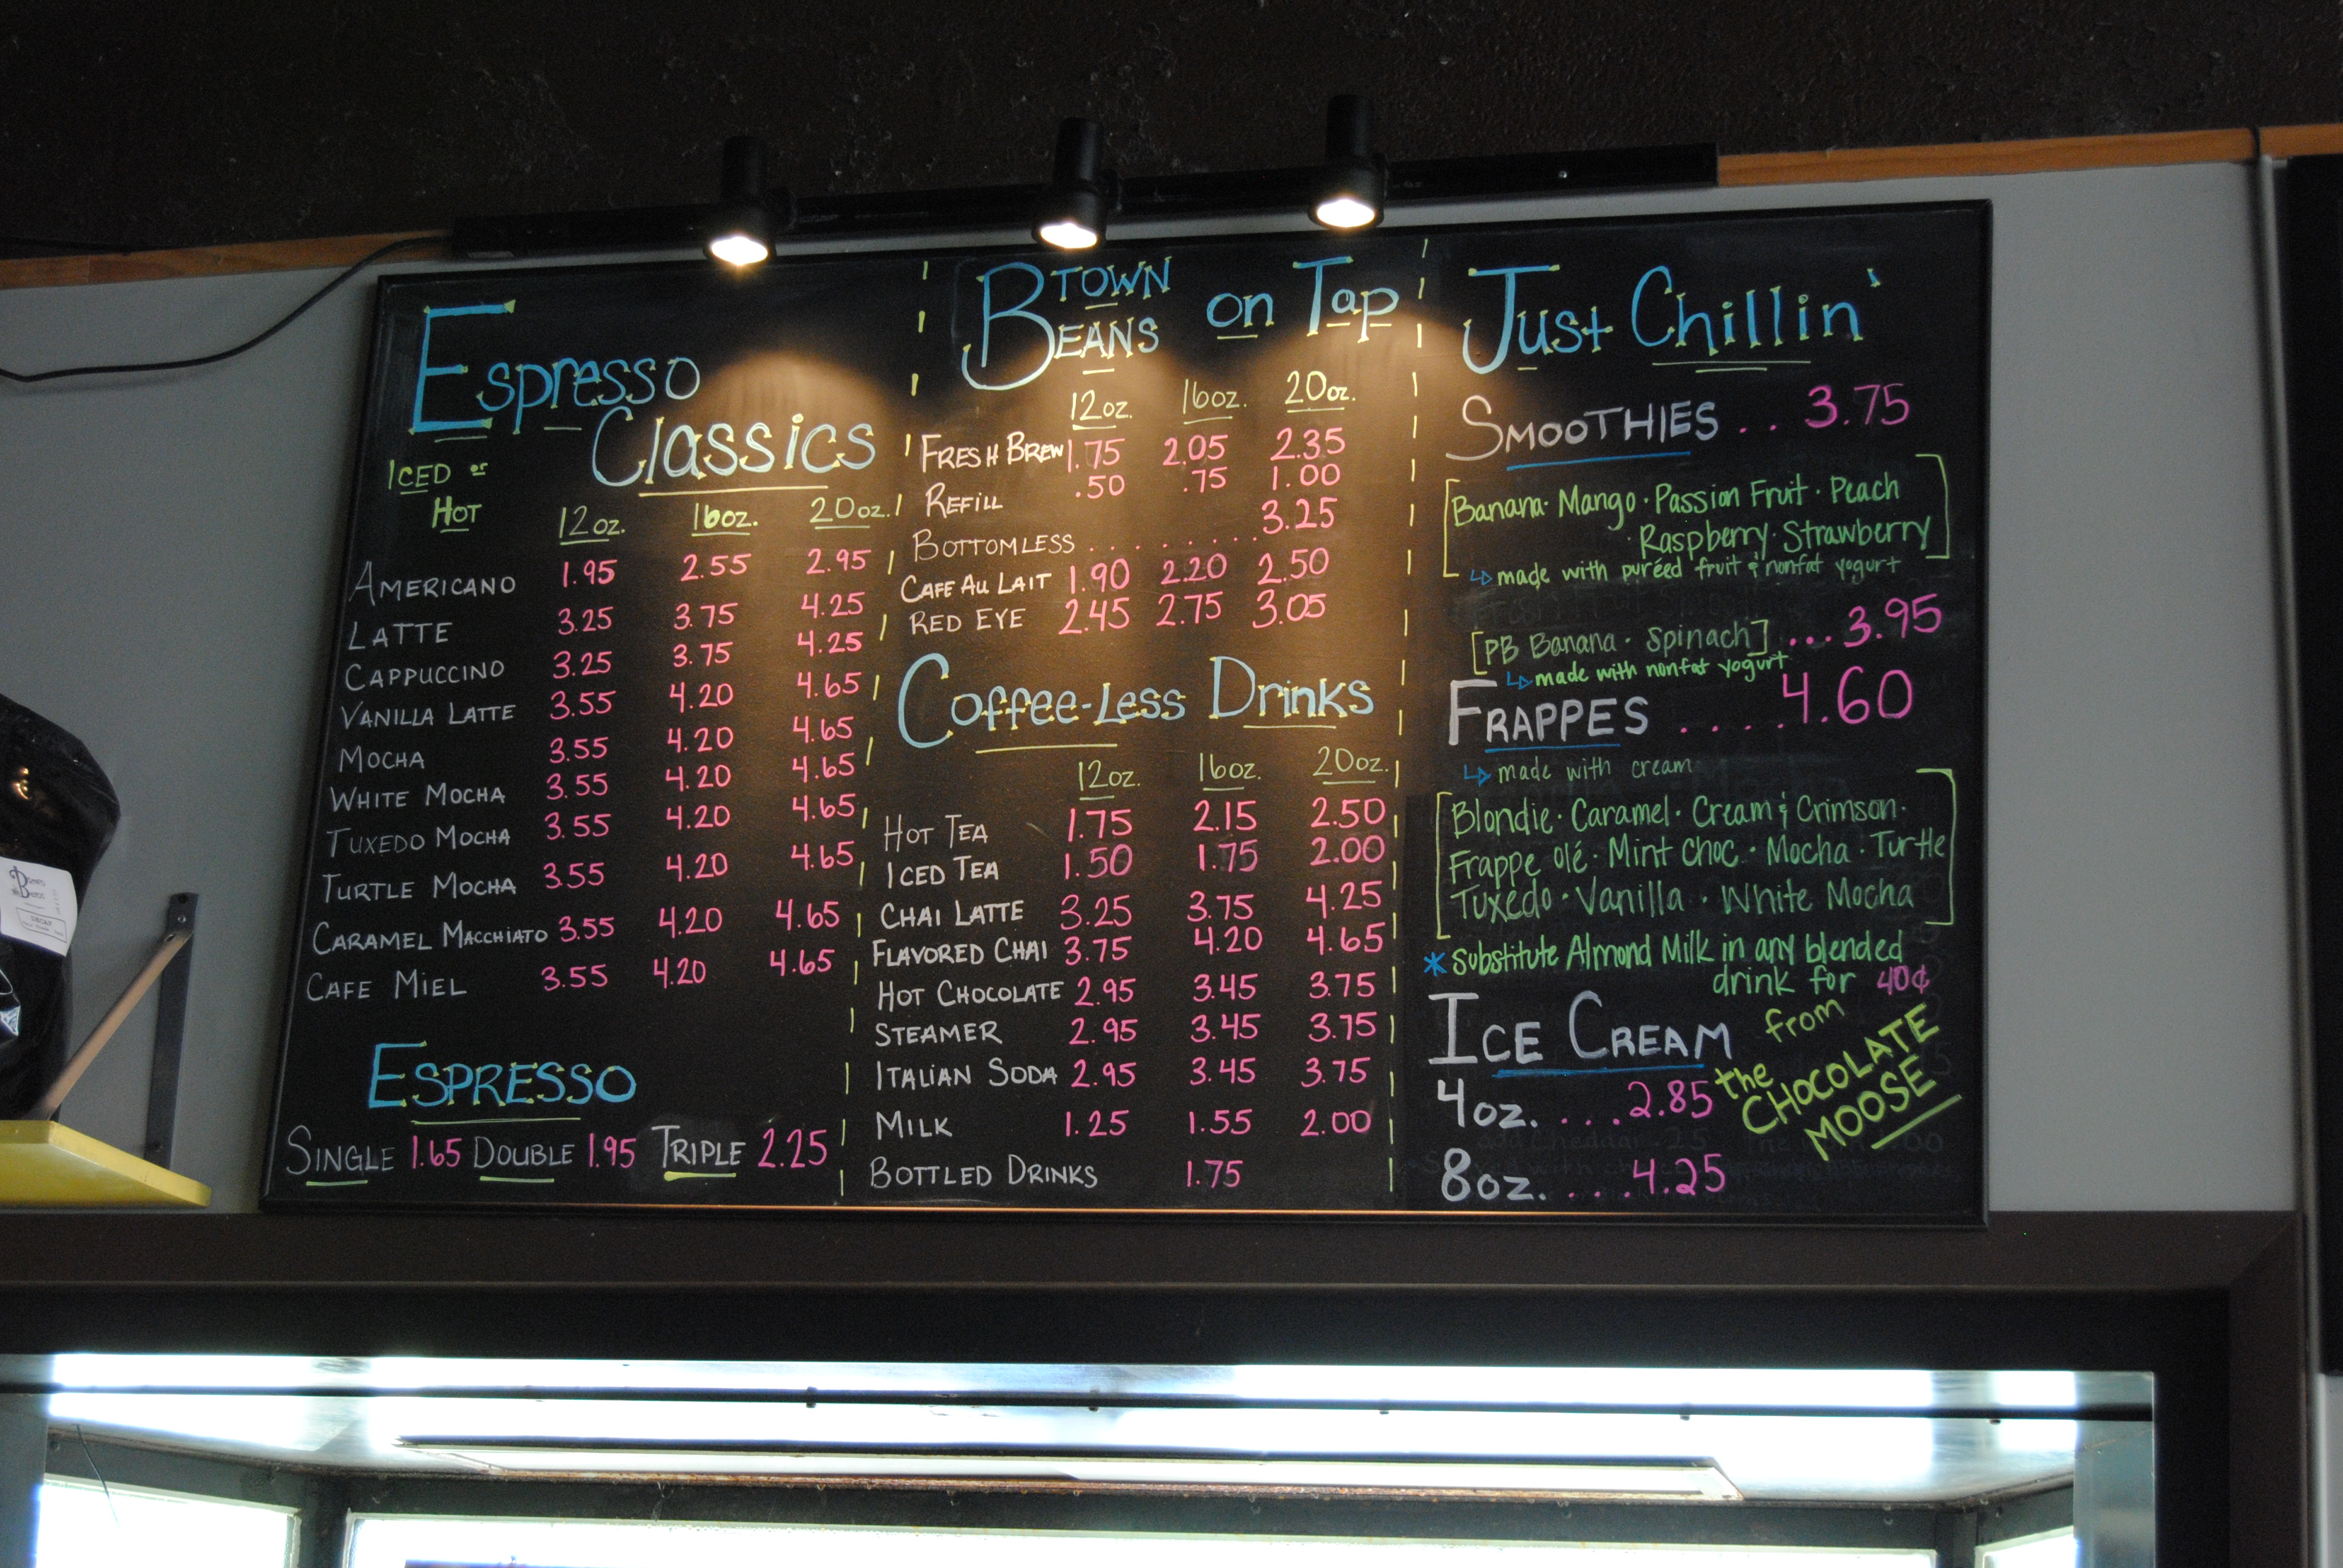 Espresso
Classics
Iced or
Hot
12oz. 16oz. 20oz.
Americano 1.95 2.55 2.95
Latte 3.25 3.75 4.25
Cappuccino 3.25 3.75 4.25
Vanilla Latte 3.55 4.20 4.65
Mocha 3.55 4.20 4.65
White Mocha 3.55 4.20 4.65
Tuxedo Mocha 3.55 4.20 4.65
Turtle Mocha 3.55 4.20 4.65
Caramel Macchiato 3.55 4.20 4.65
Cafe Miel 3.55 4.20 4.65
Espresso
Single 1.65 Double 1.95 Triple 2.25
Btown
Beans on Tap
12oz. 16oz. 20oz.
Fresh Brew 1.75 2.05 2.35
Refill .50 .75 1.00
Bottomless . . . . . . . . . 3.25
Cafe Au Lait 1.90 2.20 2.50
Red Eye 2.45 2.75 3.05
Coffee-Less Drinks
12oz. 16oz. 20oz.
Hot Tea 1.75 2.15 2.50
Iced Tea 1.50 1.75 2.00
Chai Latte 3.25 3.75 4.25
Flavored Chai 3.75 4.20 4.65
Hot Chocolate 2.95 3.45 3.75
Steamer 2.95 3.45 3.75
Italian Soda 2.95 3.45 3.75
Milk 1.25 1.55 2.00
Bottled Drinks 1.75
Just Chillin'
Smoothies . . 3.75
[Banana · Mango · Passion Fruit · Peach
· Raspberry · Strawberry]
↳ made with puréed fruit & nonfat yogurt
[PB Banana · Spinach] ... 3.95
↳ made with nonfat yogurt
Frappes . . . . 4.60
↳ made with cream
[Blondie · Caramel · Cream & Crimson ·
Frappe olé · Mint Choc · Mocha · Turtle
Tuxedo · Vanilla · White Mocha]
* Substitute Almond Milk in any blended
drink for 40¢
Ice Cream from
the
CHOCOLATE
MOOSE
4oz. . . . 2.85
8oz. . . . 4.25